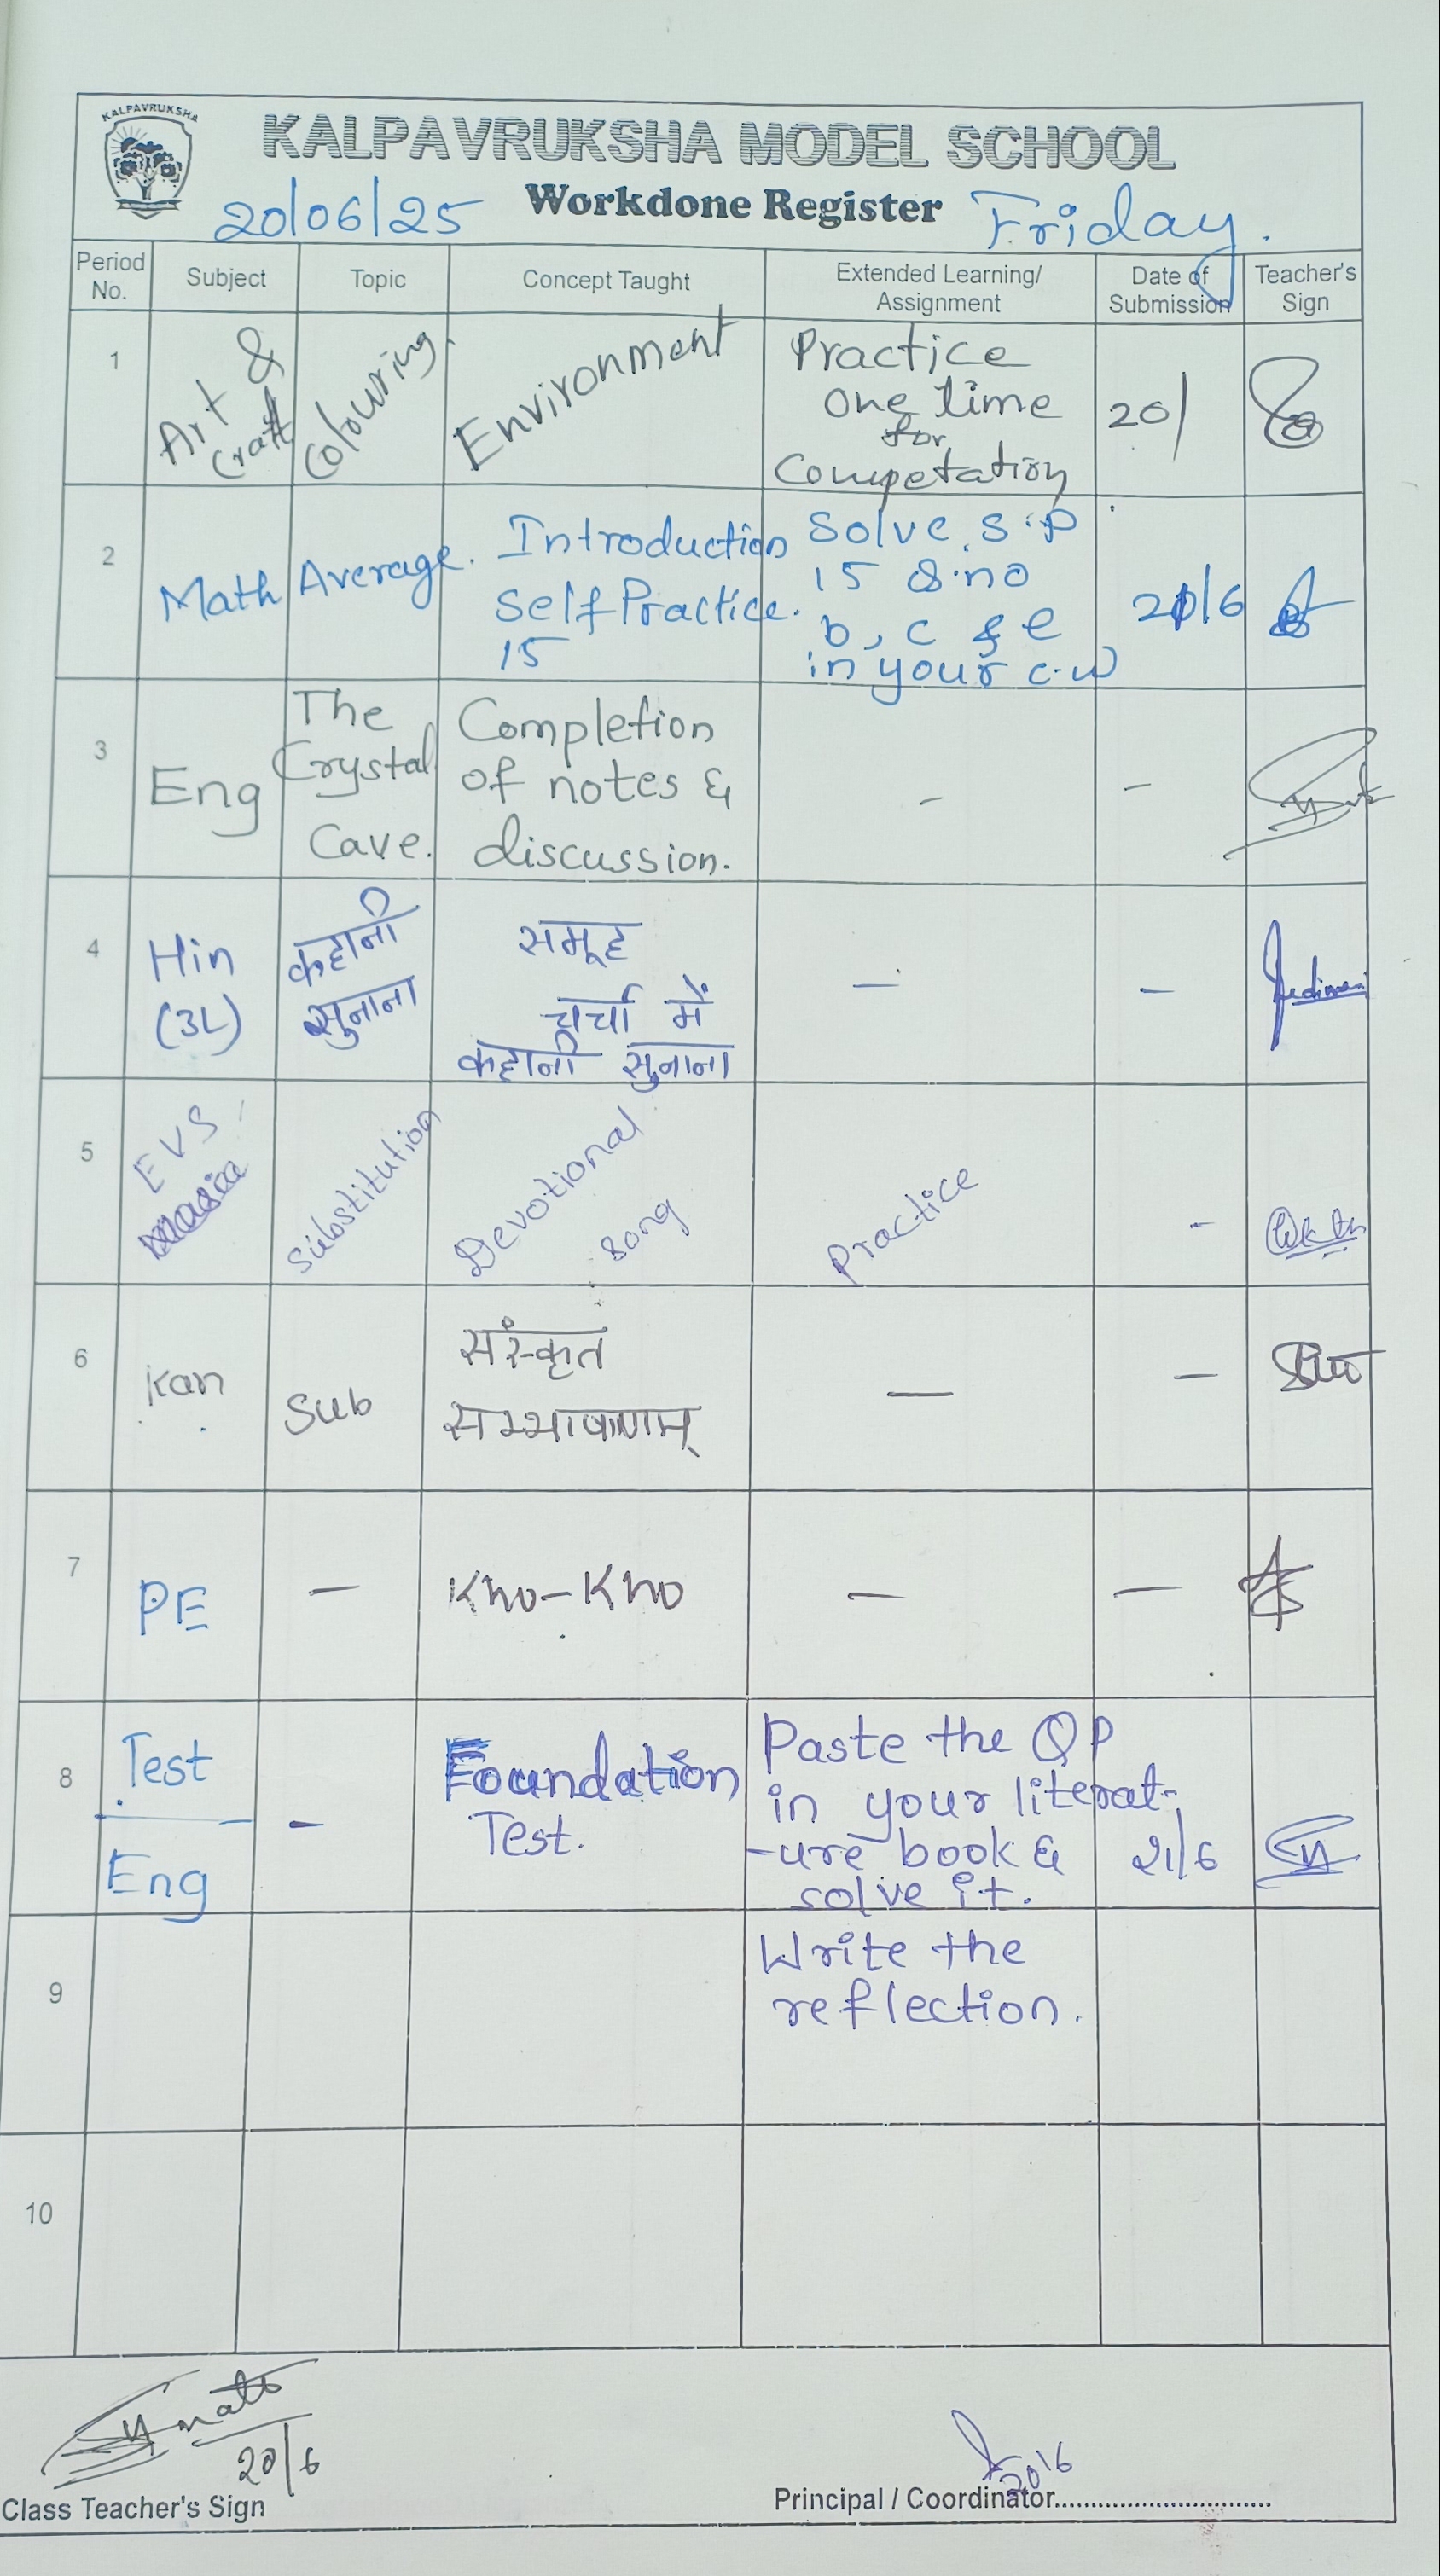 KALPAVRUKSHA
KALPAVRUKSHA MODEL SCHOOL
Workdone Register
20/06/25
Friday.
Period No.
Subject
Topic
Concept Taught
Extended Learning/ Assignment
Date of Submission
Teacher's Sign
1
Art & Craft
Colouring.
Environment
Practice
one time
for
Competation
20/
2
Math
Average.
Introduction
Self Practice.
15
Solve S.P
15 Q.no
b, c & e
in your c.w
21/6
3
Eng
The
Crystal
Cave.
Completion
of notes &
discussion.
-
-
4
Hin
(3L)
कहानी
सुनाना
समूह
चर्चा में
कहानी सुनाना
-
-
5
EVS
Substitution
Devotional
Song
Practice
-
6
Kan
Sub
संस्कृत
सम्भाषणम्
-
-
7
PE
-
Kho-Kho
-
-
8
Test
Eng
-
Foundation
Test.
Paste the QP
in your literat-
-ure book &
solve it.
21/6
9
Write the
reflection.
10
20/6
Class Teacher's Sign
20/6
Principal / Coordinator..............................